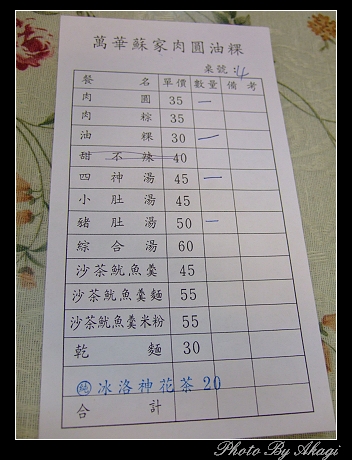 萬華蘇家肉圓油粿
桌號:4
餐名 單價 數量 備考
肉圓 35 一
肉粽 35
油粿 30 一
甜不辣 40
四神湯 45 一
小肚湯 45
豬肚湯 50 一
綜合湯 60
沙茶魷魚羹 45
沙茶魷魚羹麵 55
沙茶魷魚羹米粉 55
乾麵 30
純 冰洛神花茶 20
合計
Photo By Akagi